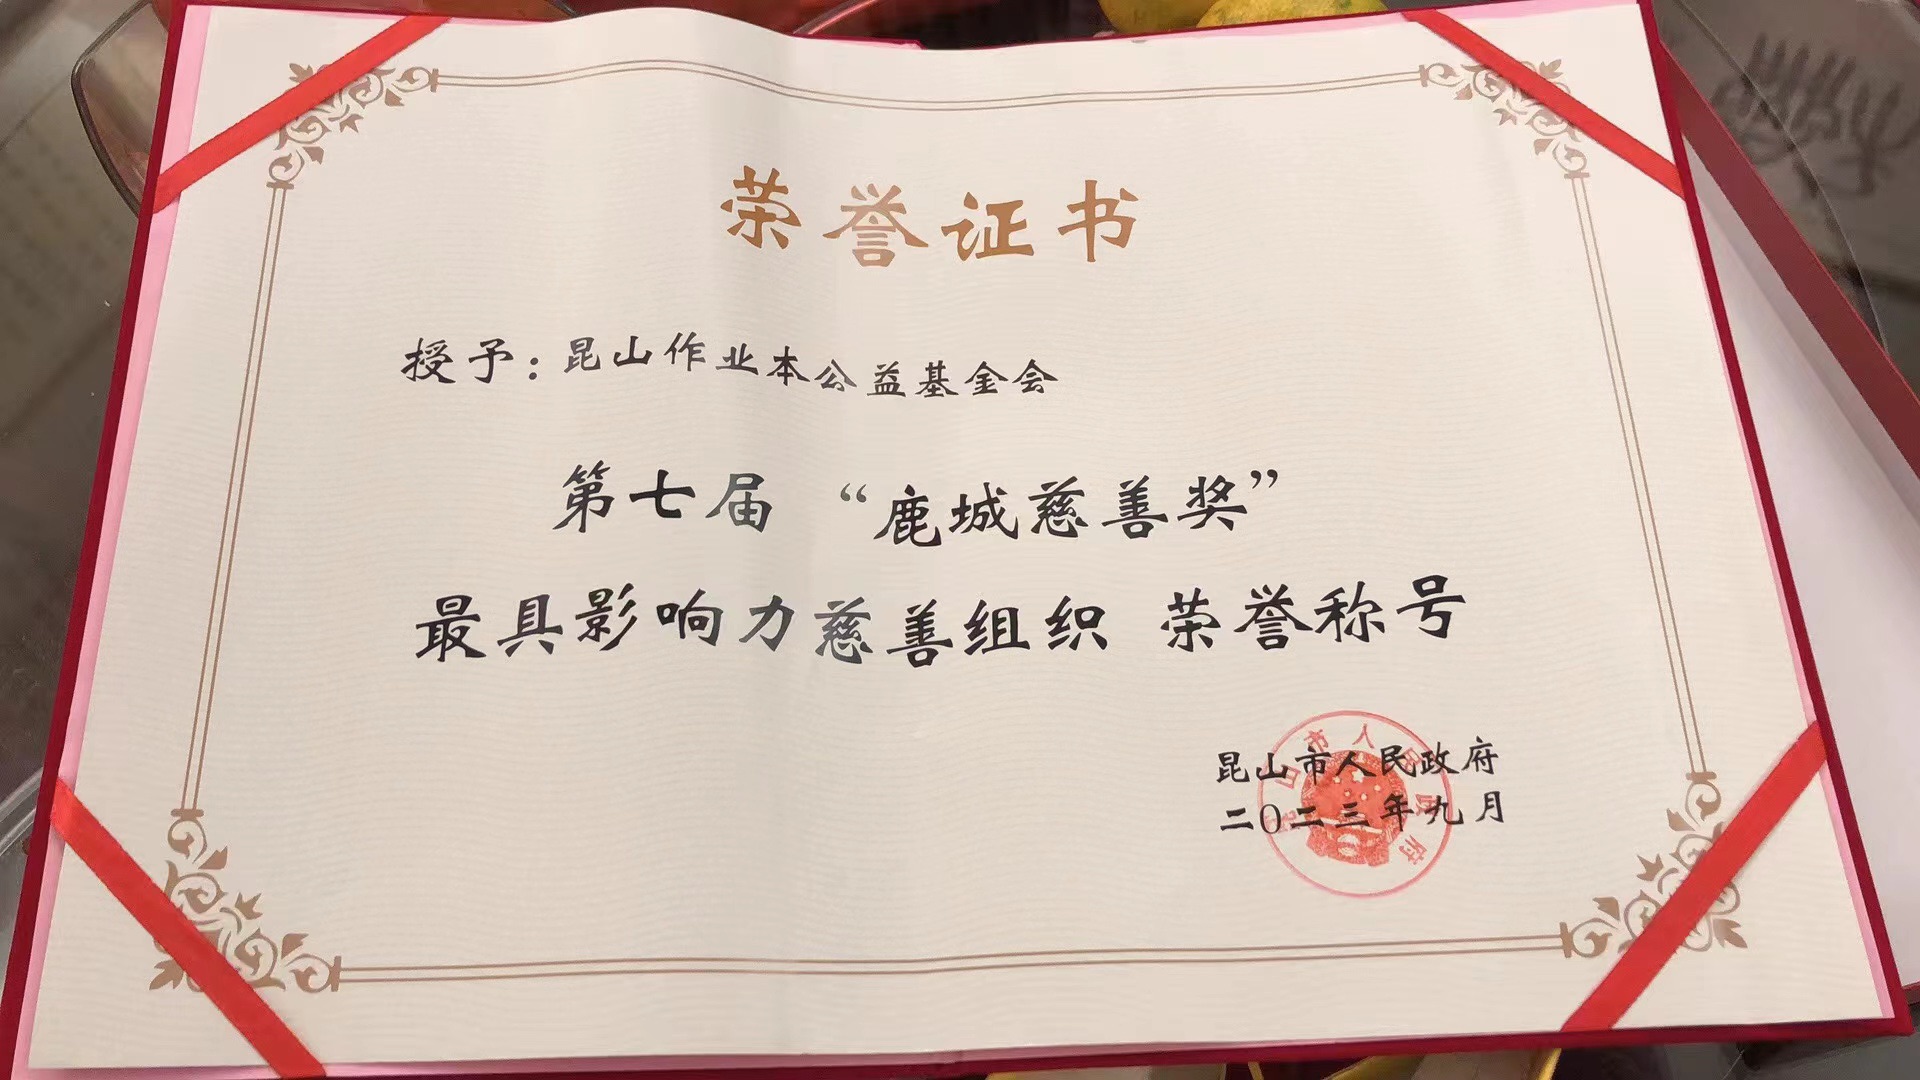 荣誉证书
授予：昆山作业本公益基金会
第七届 “鹿城慈善奖”
最具影响力慈善组织 荣誉称号
昆山市人民政府
二〇二三年九月